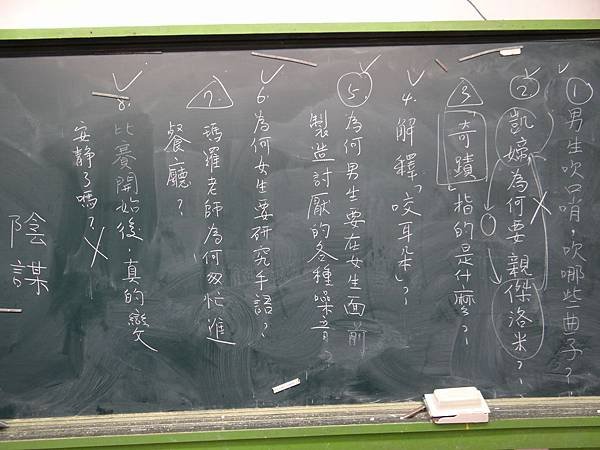 ①男生吹口哨，吹哪些曲子？
②凱婦為何要親傑洛米？
③「奇蹟」指的是什麼？
4.解釋「咬耳朵」？
⑤為何男生要在女生面前
製造討厭的各種噪音？
6.為何女生要研究手語？
7.瑪羅老師為何匆忙進
餐廳？
8.比賽開始後，真的變
安靜了嗎？
陰謀